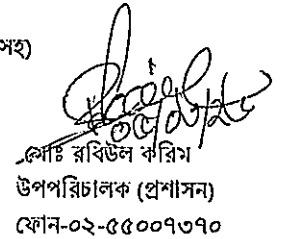 সহ)
মোঃ রবিউল করিম
উপপরিচালক (প্রশাসন)
ফোন-০২-৫৫০০৭৩৭০